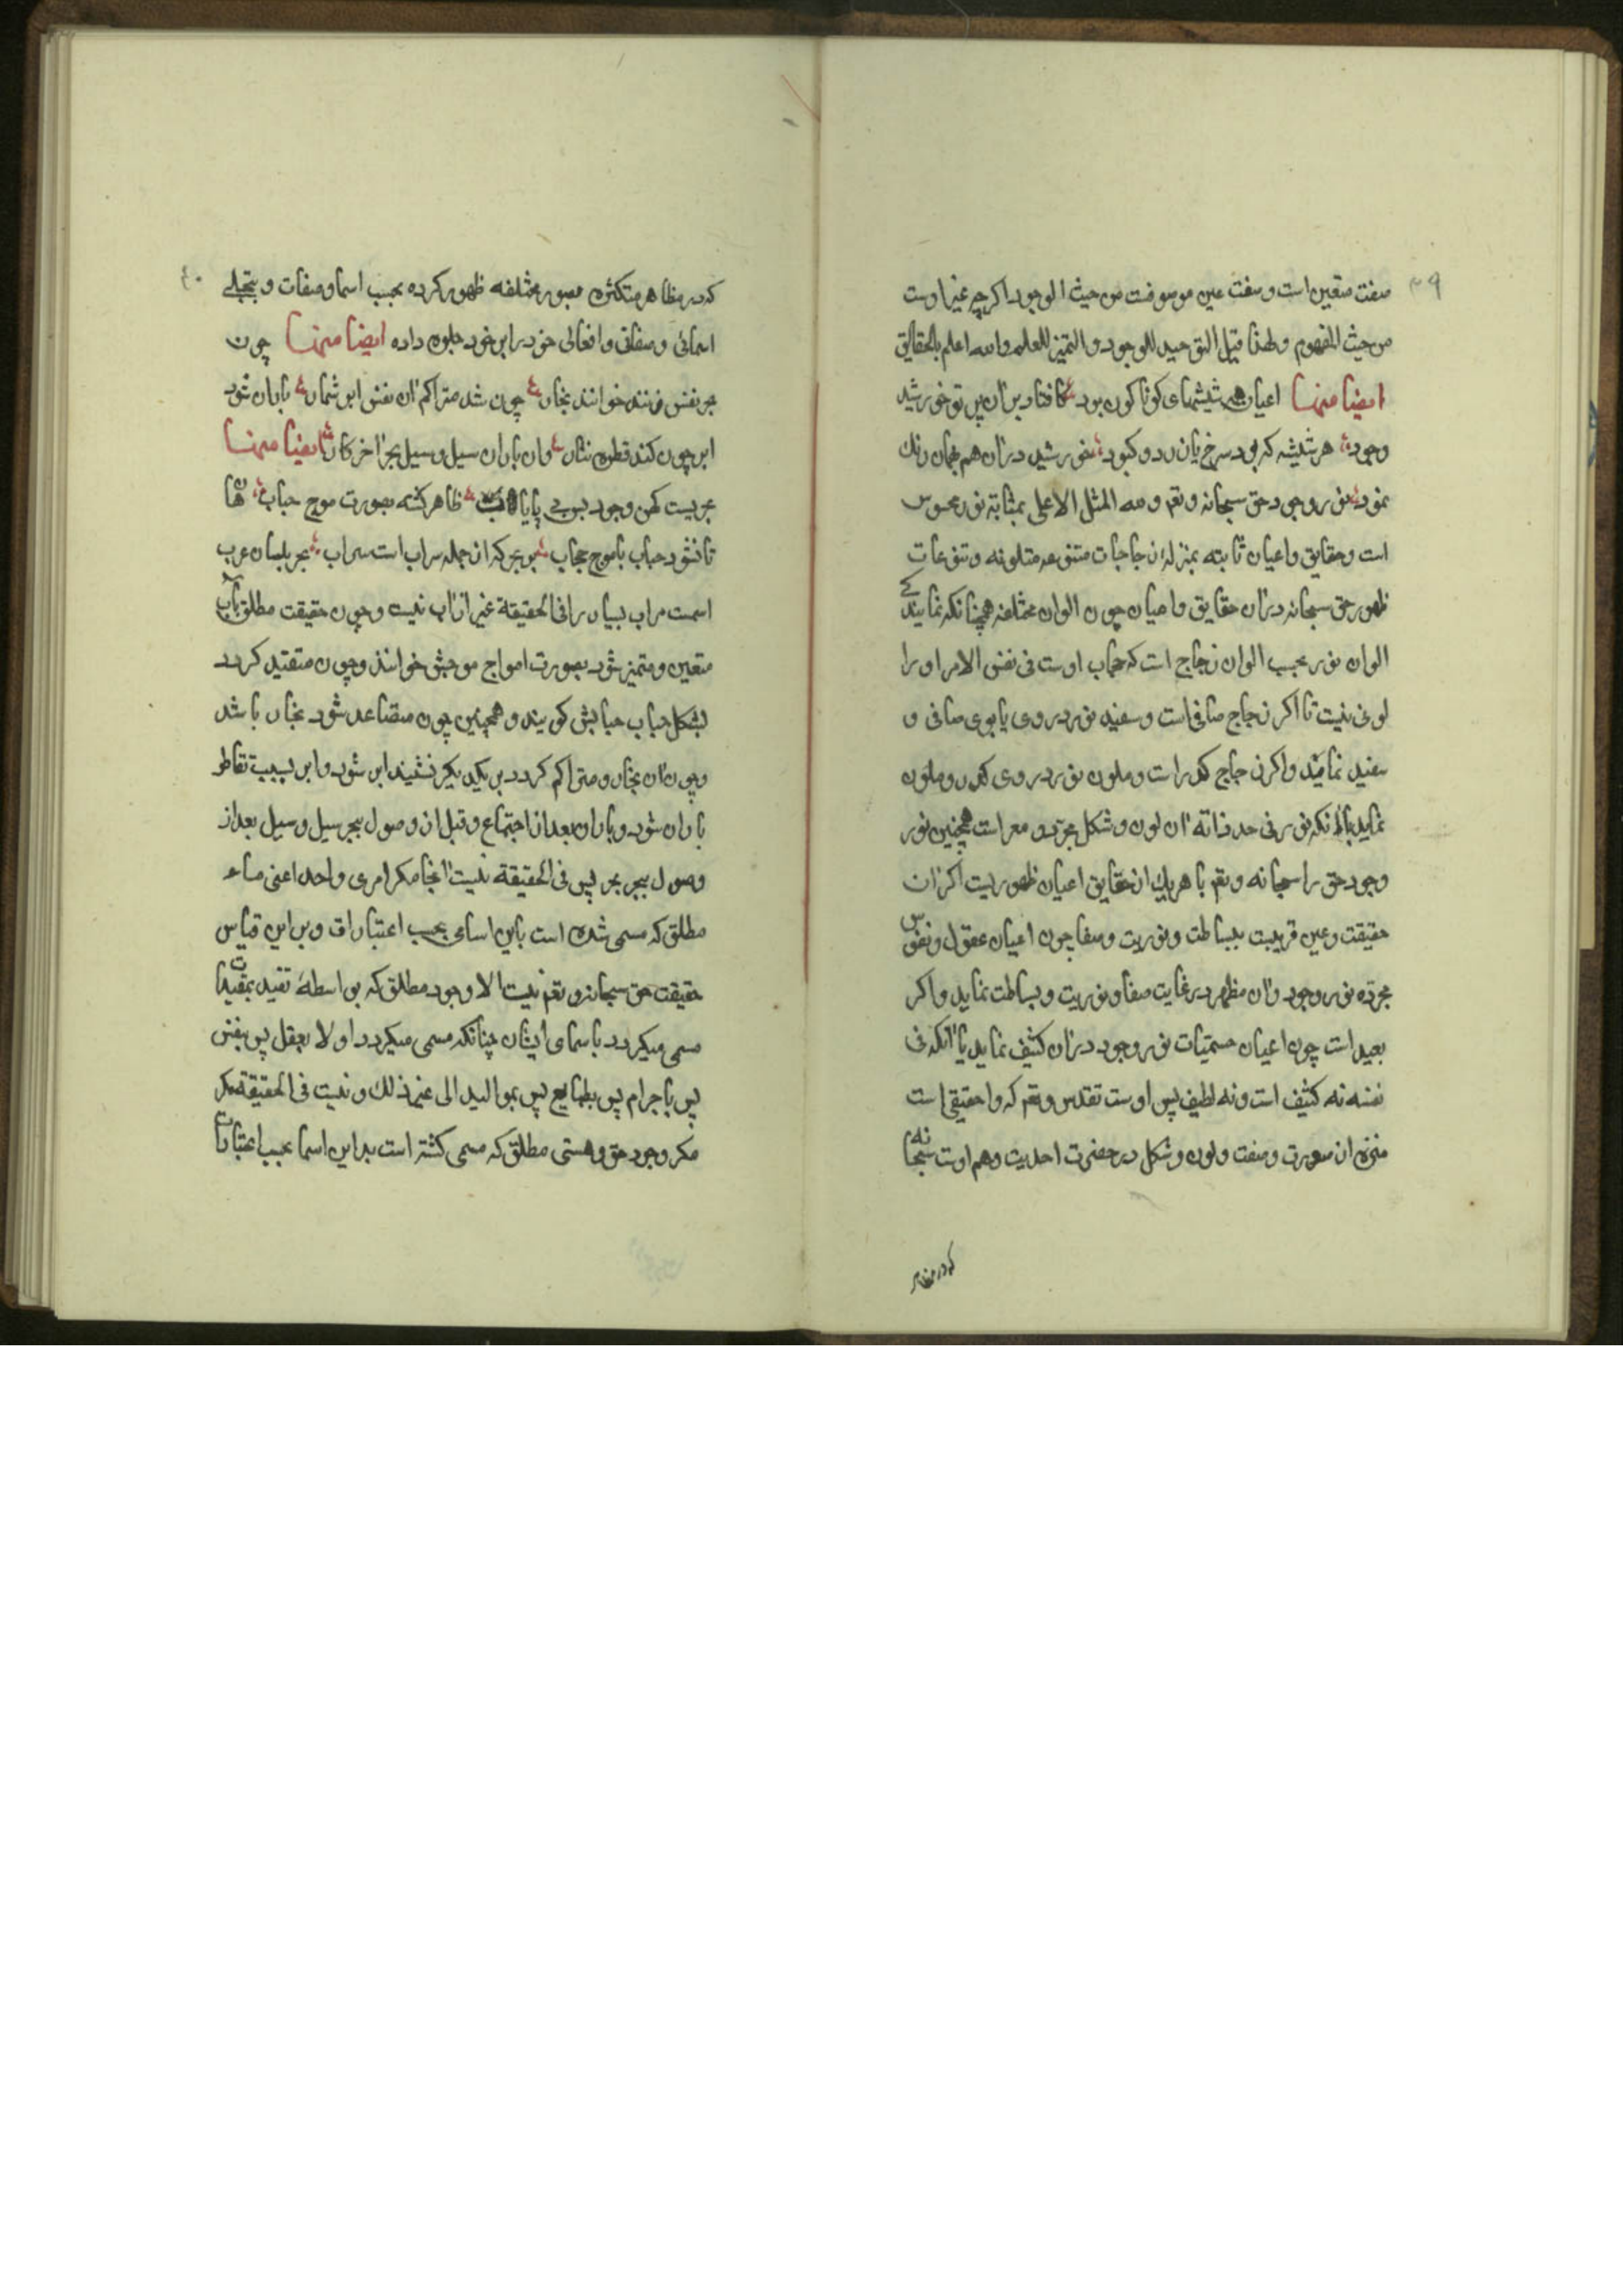 ۳۹
صفت متعین است و صفت عین موصوفست من حیث الوجود اکرچه غیر اوست
من حیث المفهوم و لهذا قیل التوحید للوجود و التمیز للعلم والله اعلم بالحقایق
ایضا منها اعیان همه شیشهای کوناکون بود کافتاد بران پرتو خورشید
وجود هر شیشه که بود سرخ یا زرد و کبود خورشید دران هم بهمان رنك
نمود نور وجود حق سبحانه و تعم و لله المثل الاعلی بمثابه نور محسوس
است و حقایق و اعیان ثابته بمنزله زجاجات متنوعه متلونه و تنوعات
ظهور حق سبحانه دران حقایق و اعیان چون الوان مختلفه همچنانکه نمایندکی
الوان نور بحسب الوان زجاج است که حجاب اوست فی نفس الامر او را
لونی نیست تا اکر زجاج صافی است و سفید نور در وی یا بوی صافی و
سفید نماید و اکر زجاج کدر است و ملون نور در وی کدر و ملون
نماید با انکه نور فی حد ذاته از لون و شکل مجرد و معراست همچنین نور
وجود حق را سبحانه و تعم با هریك از حقایق اعیان ظهوریست اکر ان
حقیقت و عین قریبست ببساطت و نوریت و صفا چون اعیان عقول و نفوس
مجرده نور وجود دران مظهر در غایت صفا و نوریت و بساطت نماید و اکر
بعید است چون اعیان جسمیات نور وجود دران کثیف نماید با انکه فی
نفسه نه کثیف است و نه لطیف پس اوست تقدس و تعم که واحد حقیقی است
منزه از صورت و صفت و لون و شکل در حضرت احدیت و هم اوست سبحانه
که در مظاهر
٤٠
که در مظاهر متکثره بصور مختلفه ظهور کرده بحسب اسما و صفات و بتجلی
اسمائی و صفاتی و افعالی خود را بر خود جلوه داده ایضا منها چون
بحر نفس زند خوانند بخار چون شد متراکم ان نفس ابر شمار باران شود
ابر چون کند قطره نثار وان باران سیل و سیل بحر اخر کار ایضا منها
بحریست کهن وجود بس بی پایاب ظاهر کشته بصورت موج حباب هان
تا نشود حباب یا موج حجاب بر بحر که ان جمله سراب است سراب بحر بلسان عرب
اسمست مراب بسیار را فی الحقیقة غیر از اب نیست و چون حقیقت مطلق اب
متعین و متمیز شود بصورت امواج موجش خوانند و چون متقید کردد
بشکل حباب حبابش کویند و همچنین چون متصاعد شود بخار باشد
و چون ان بخار و متراکم کردد بر یکدیکر نشیند ابر شود و ابر بسبب تقاطر
باران شود و باران بعد از اجتماع و قبل از وصول ببحر سیل و سیل بعد از
وصول ببحر بحر پس فی الحقیقة نیست اینجا مکر امری واحد اعنی ماء
مطلق که مسمی شده است باین اسامی بحسب اعتبارات و بر این قیاس
حقیقت حق سبحانه و تعم نیست الا وجود مطلق که بواسطهٔ تقید بمقیدات
مسمی میکردد باسمای ایشان چنانکه مسمی میکردد اولا بعقل پس بنفس
پس باجرام پس بطبایع پس بموالید الی غیر ذلك و نیست فی الحقیقة مکر
مکر وجود حق و هستی مطلق که مسمی کشته است بداین اسما بحسب اعتبارات